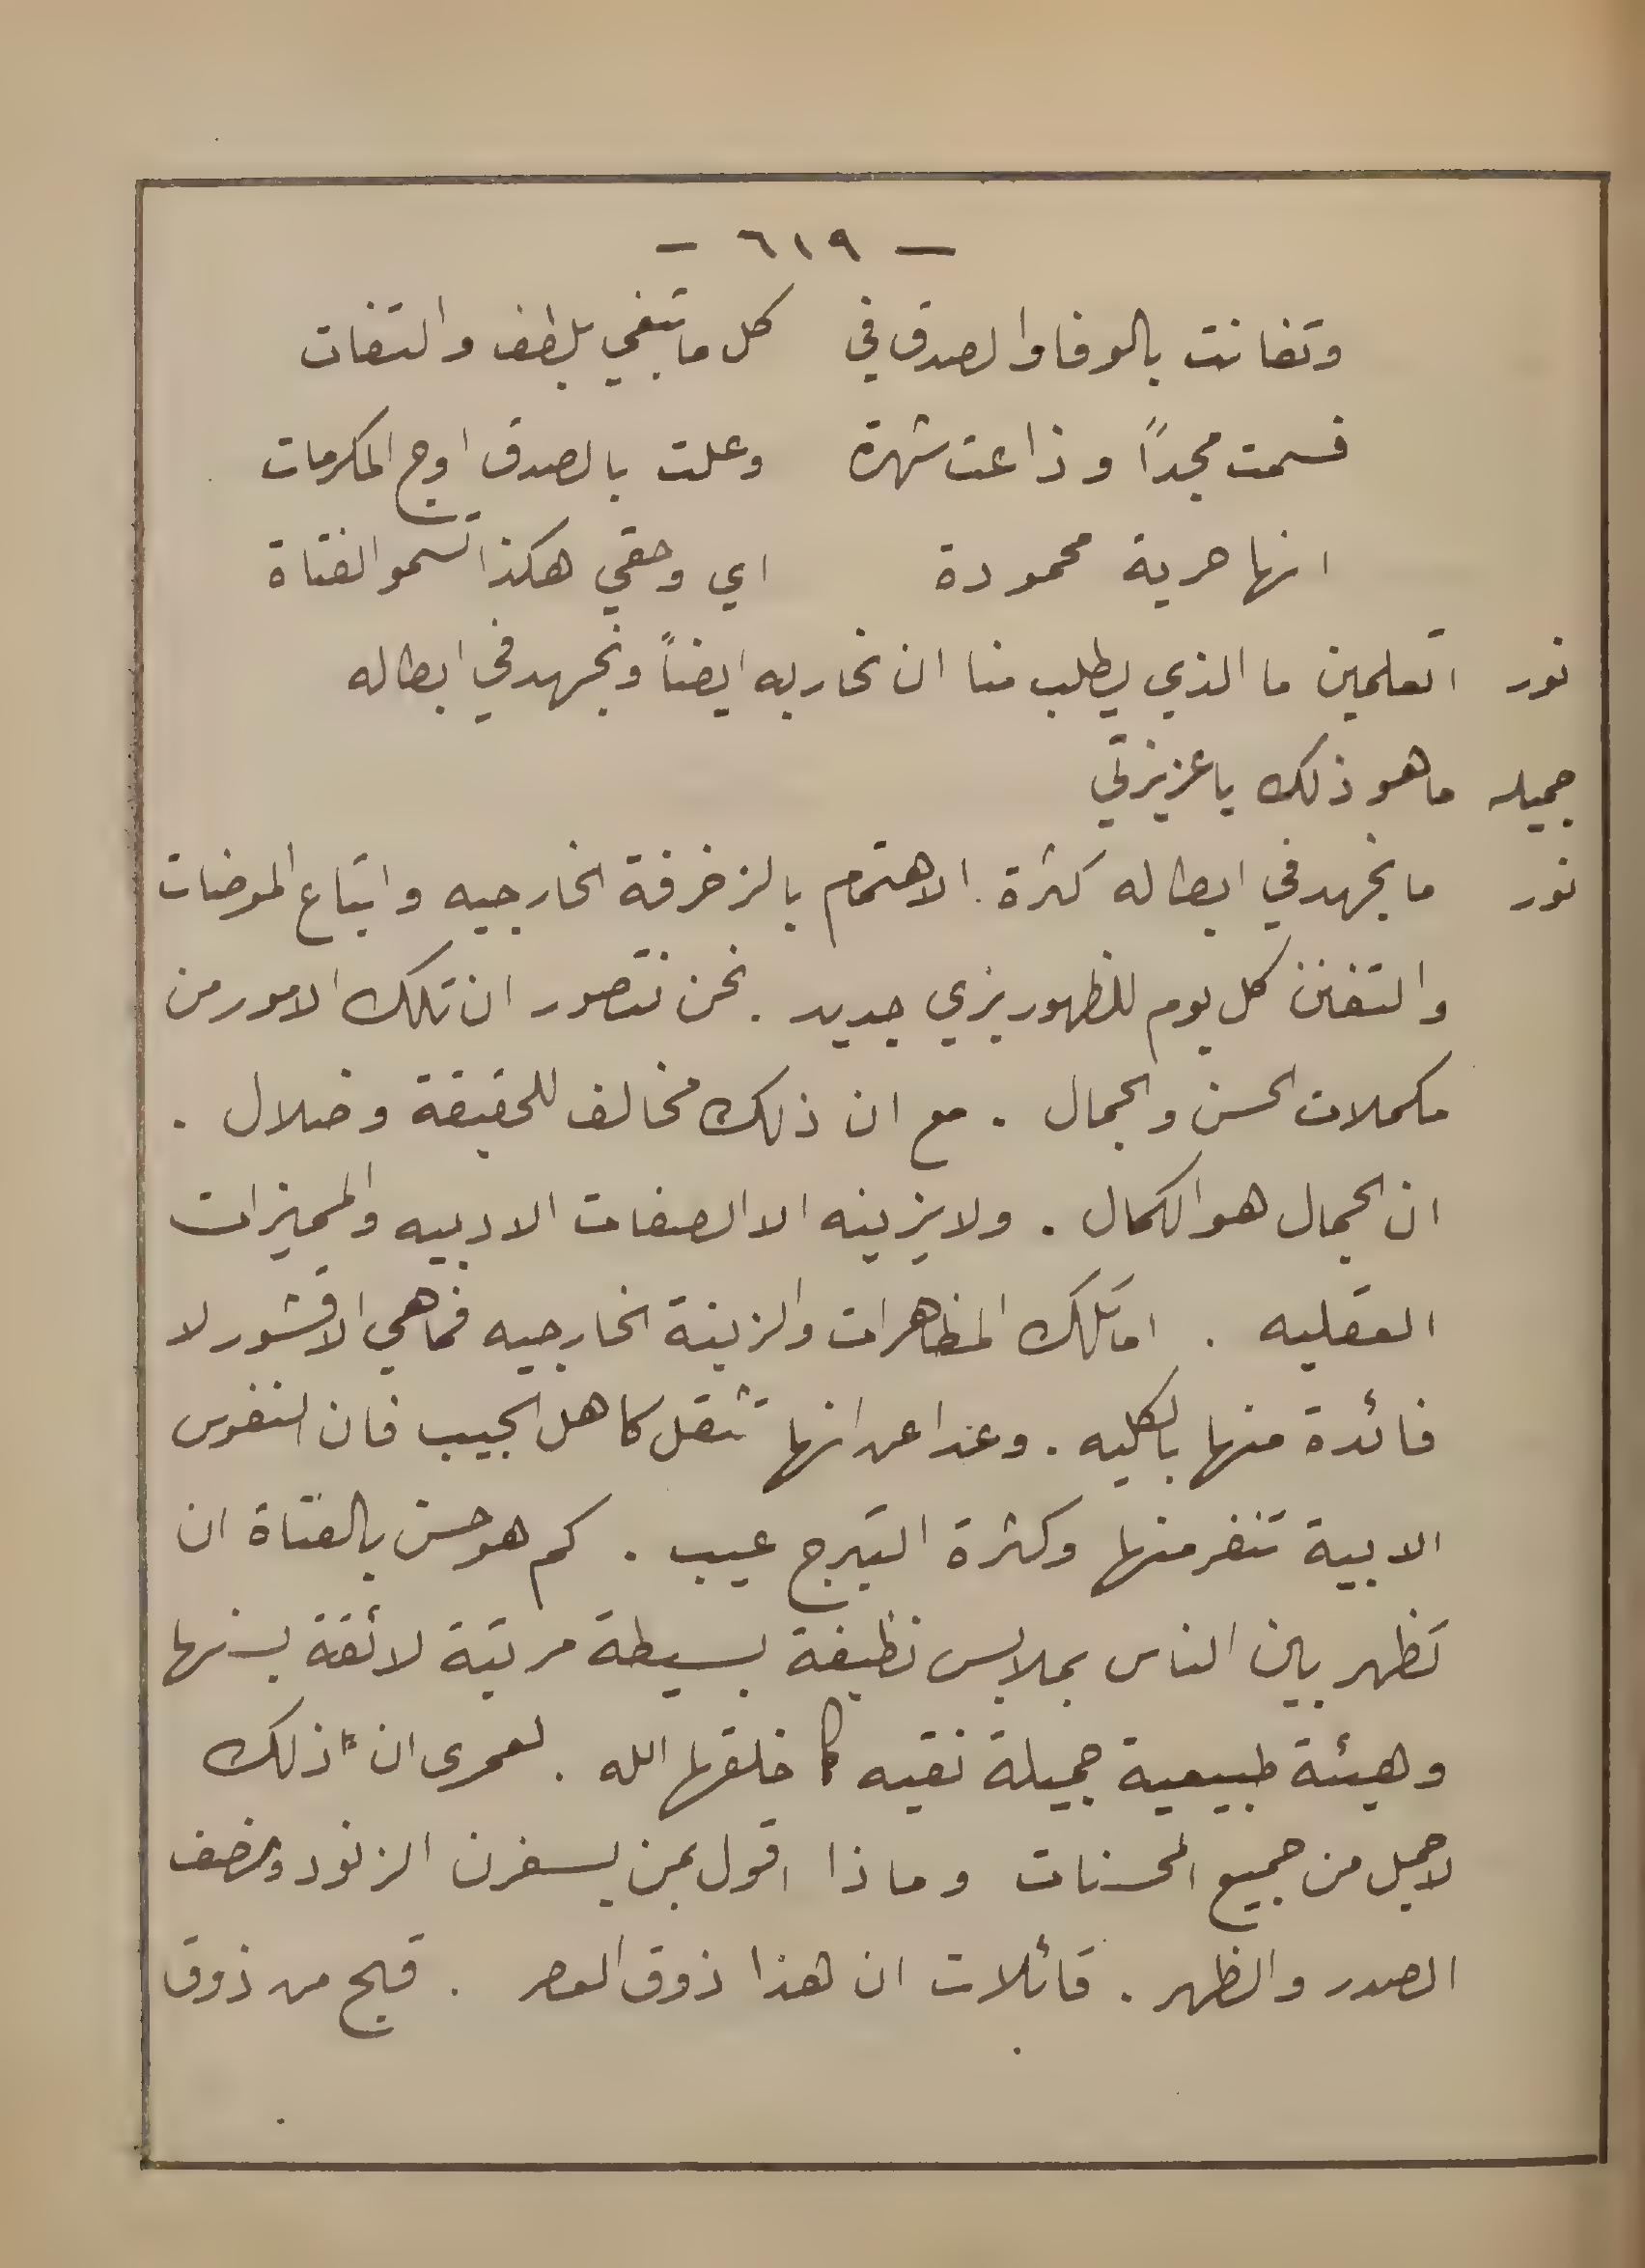 — ٦١٩ —
وتفانت بالوفا والصدق في كل ما تبغي بلطف والتفات
فسمت مجداً وذاعت شهرة وعلت بالصدق اوج المكرمات
انها حرية محمودة اي وحقي هكذا تسمو الفتاة
نور اتعلمين ما الذي يطلب منا ان نحاربه ايضاً ونجهد في ابطاله
جميله ما هو ذلك يا عزيزتي
نور ما نجهد في ابطاله كثرة الاهتمام بالزخرفة الخارجيه واتباع الموضات
والتفنن كل يوم للظهور بزي جديد . نحن نتصور ان تلك الامور من
مكملات الحسن والجمال . مع ان ذلك مخالف للحقيقة وضلال .
ان الجمال هو الكمال . ولا يزينه الا الصفات الادبيه والمميزات
العقليه . اما تلك المظاهرات والزينة الخارجيه فما هي الا قشور لا
فائدة منها بالكليه . وعدا عن انها تثقل كاهل الجيب فان النفوس
الابية تنفر منها وكثرة التبرج عيب . كم هو حسن بالفتاة ان
تظهر بين الناس بملابس نظيفة بسيطة مرتبة لائقة بسنها
وهيئة طبيعية جميلة نقيه كما خلقها الله . لعمرى ان ذلك
لاجمل من جميع المحسنات وماذا اقول بمن يسفرن الزنود ونصف
الصدر والظهر . قائلات ان هذا ذوق العصر . قبح من ذوق